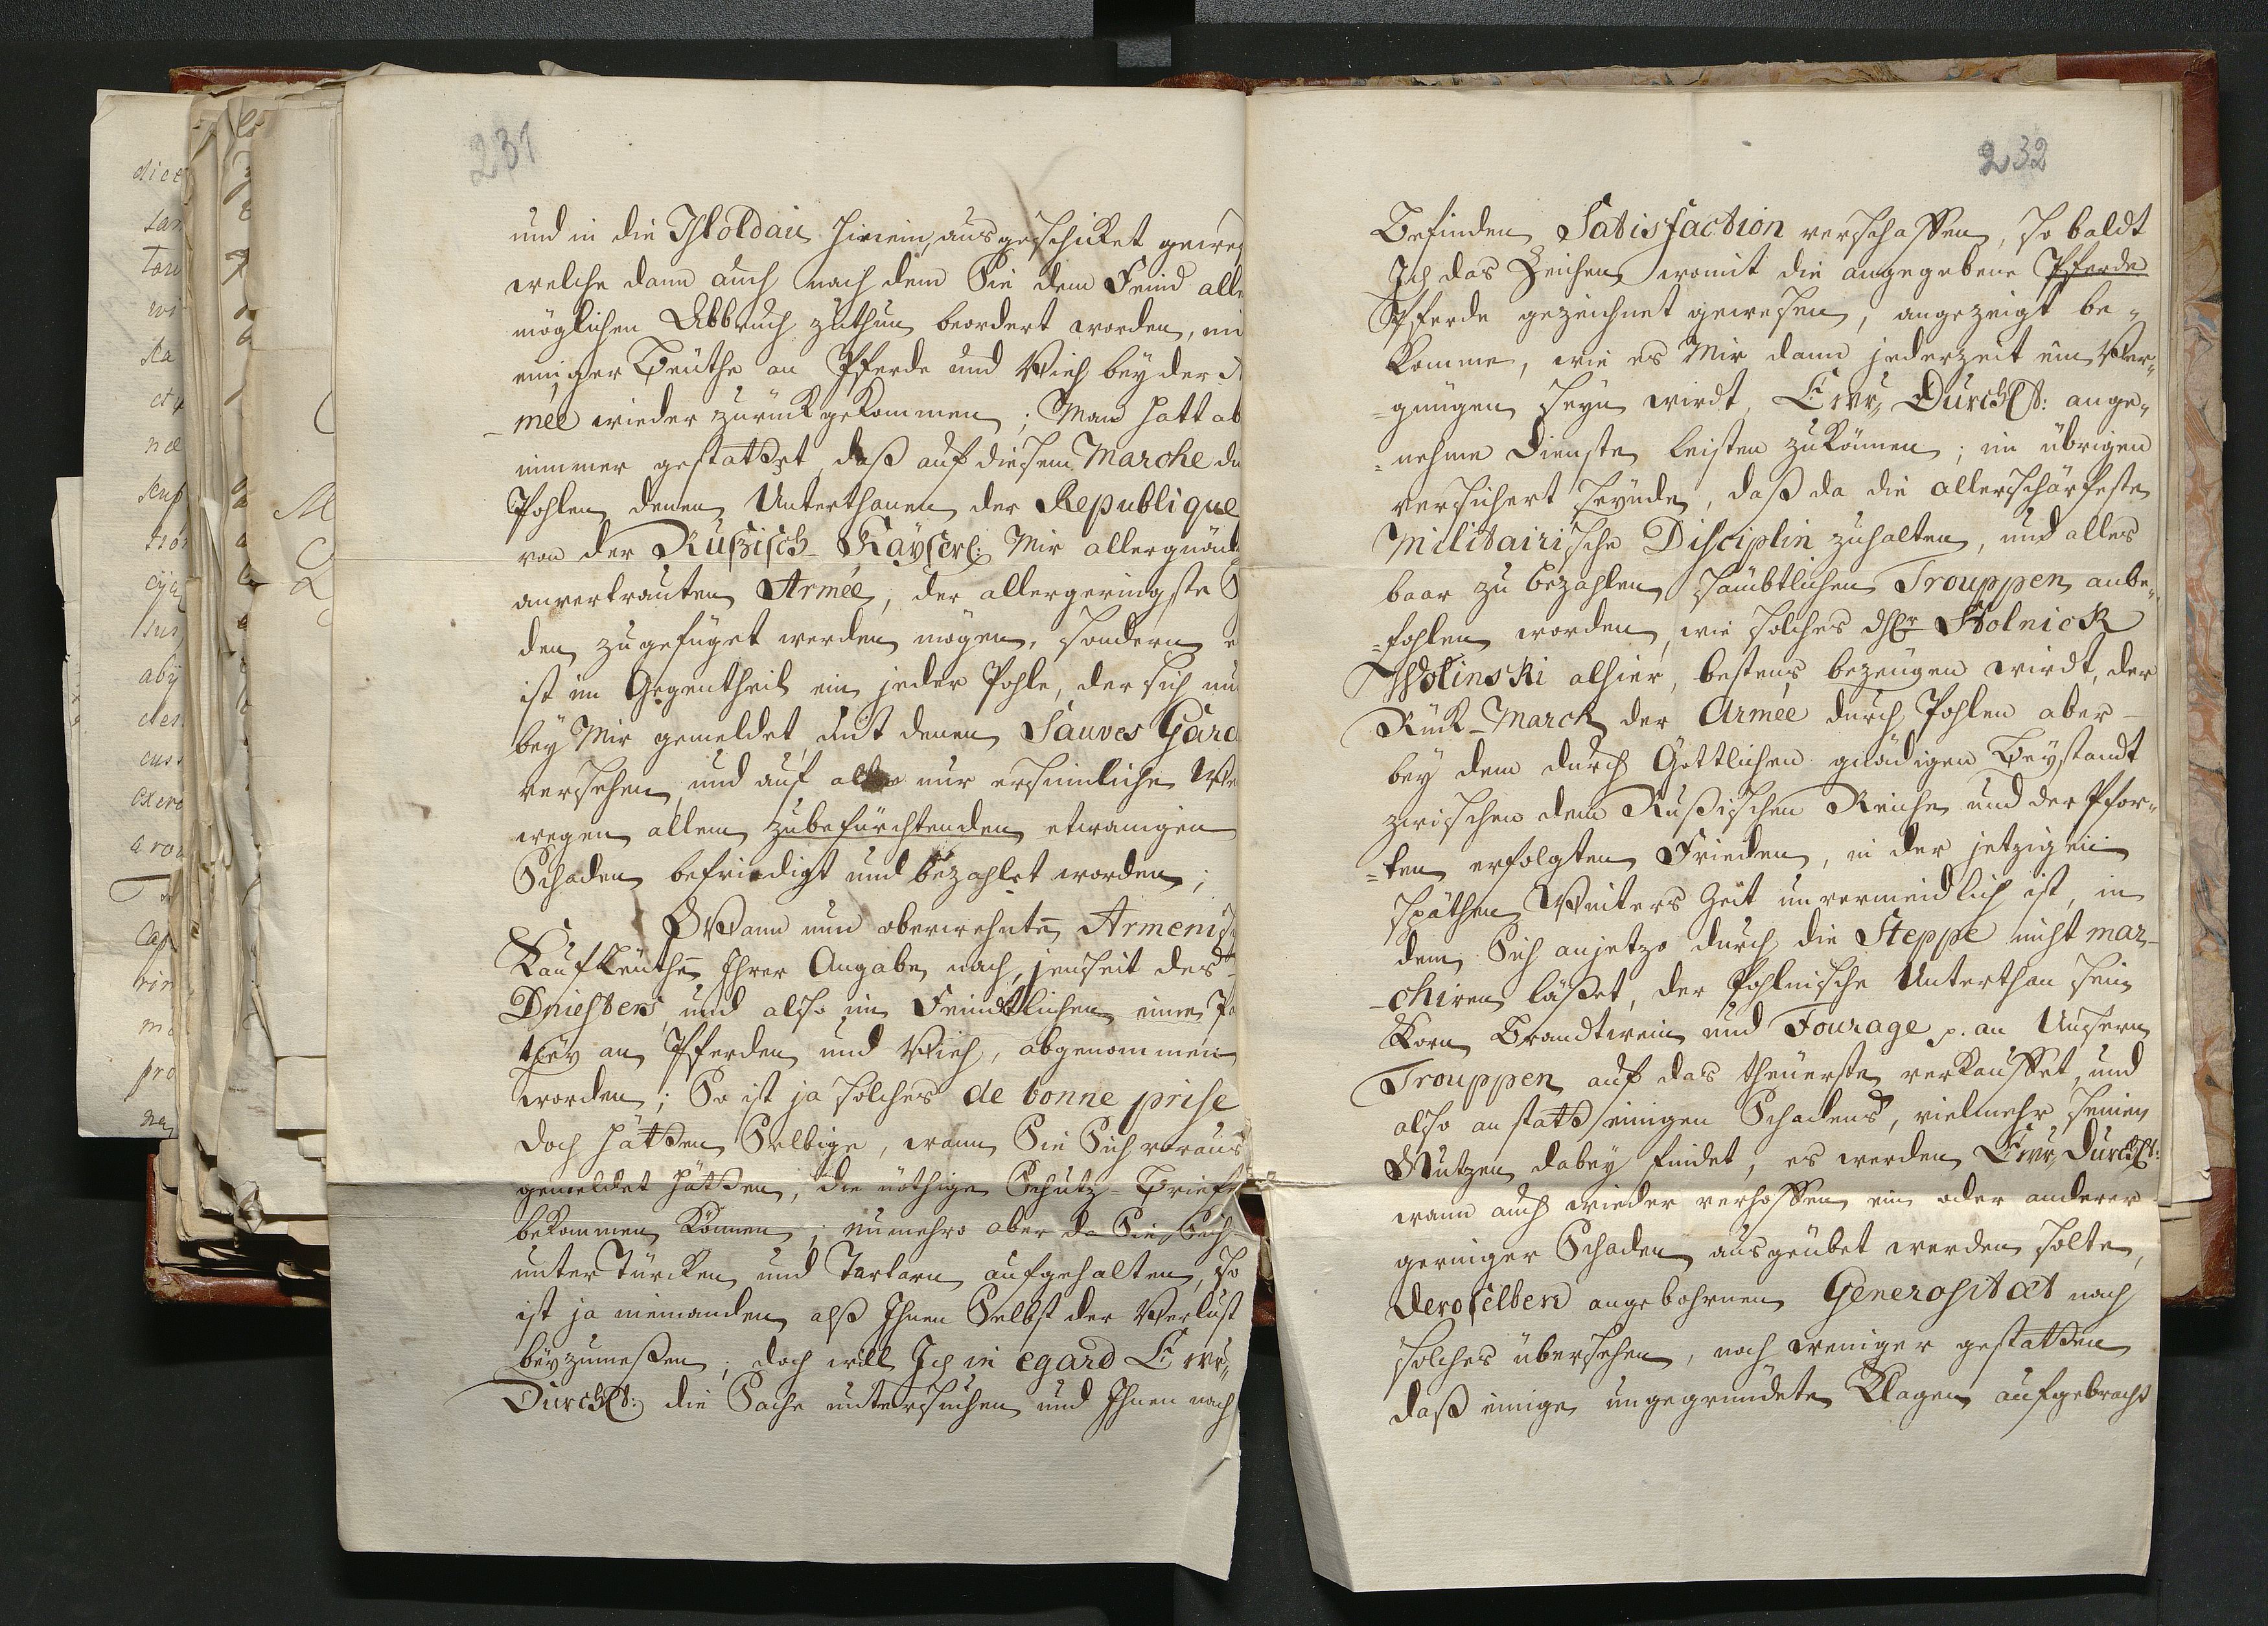 231
und in die Moldau hinein, ausgeschicket gewes
welche dann auch nach dem Sie dem Feind alle
möglichen Abbruch zuthun beordert worden, mi
einiger Beuthe an Pferde und Vieh bey der A
mée wieder zurückgekommen; Man hatt ab
nimmer gestattet, daß auf diesem Marche du
Pohlen denen Unterthanen der Republique
von der Rußisch-Kayserl: Mir allergnäd
anvertrauten Armée, der allergeringste S
den zugefüget werden mögen, sondern e
ist im Gegentheil ein jeder Pohle, der sich nu
bey Mir gemeldet mit denen Sauves Gard
versehen und auf alle nur ersinnliche We
wegen allem zubefürchtenden etwanigen
Schaden befriedigt und bezahlet worden;
Wann nun oberwehnte Armenis
Kaufleuthe Ihrer Angabe nach, jenseit des
Dniesters und also im Feindtlichen einer
an Pferden und Vieh, abgenommen
worden; So ist ja solches de bonne prise
doch hätten Selbige, wann Sie Sich voraus
gemeldet hätten, die nöthige Schutz-Briefe
bekommen können; nunmehro aber da Sie Sich
unter Türcken und Tartarn aufgehalten, so
ist ja niemanden alß Ihnen Selbst der Verlust
beyzumeßen; doch will Ich in egard Ewr,,
Durchlt: die Sache untersuchen und Ihnen nach
232
Befinden Satisfaction verschaffen, so baldt
Ich das Zeichen womit die angegebene Pferde
Pferde gezeichnet gewesen, angezeigt be-
komme, wie es Mir dann jederzeit ein Ver-
gnügen seyn wirdt, Ewr,, Durchlt: ange-
nehme Dienste leisten zu können; im übrigen
versichert seynde, daß da die allerschärfeste
Militairische Disciplin zuhalten, und alles
baar zu bezahlen sämbtlichen Trouppen anbe-
fohlen worden, wie solches dhr Stolnick
Wolinski alhier, bestens bezeugen wirdt, der
Rück-March der Armée durch Pohlen aber
bey dem durch Göttlichen gnädigen Beystandt
zwischen dem Rußischen Reiche und der Pfor-
ten erfolgten Frieden, in der jetzigen
späthen Winters Zeit unvermeidlich ist, in
dem Sich anjetzo durch die Steppe nicht mar-
chiren läßet, der Pohlnische Unterthan sein
Korn Brandtwein und Fourage p. an Unsern
Trouppen auf das theuerste verkauffet, und
also anstatt einigen Schadens, vielmehr seinen
Nutzen dabey findet, es werden Ewr,, Durchlt:
wann auch wieder verhoffen ein oder anderer
geringer Schaden ausgeübet werden solte,
deroselben angebohrnen Generositæt nach
solches übersehen, noch weniger gestatten
daß einige ungegründete Klagen aufgebracht